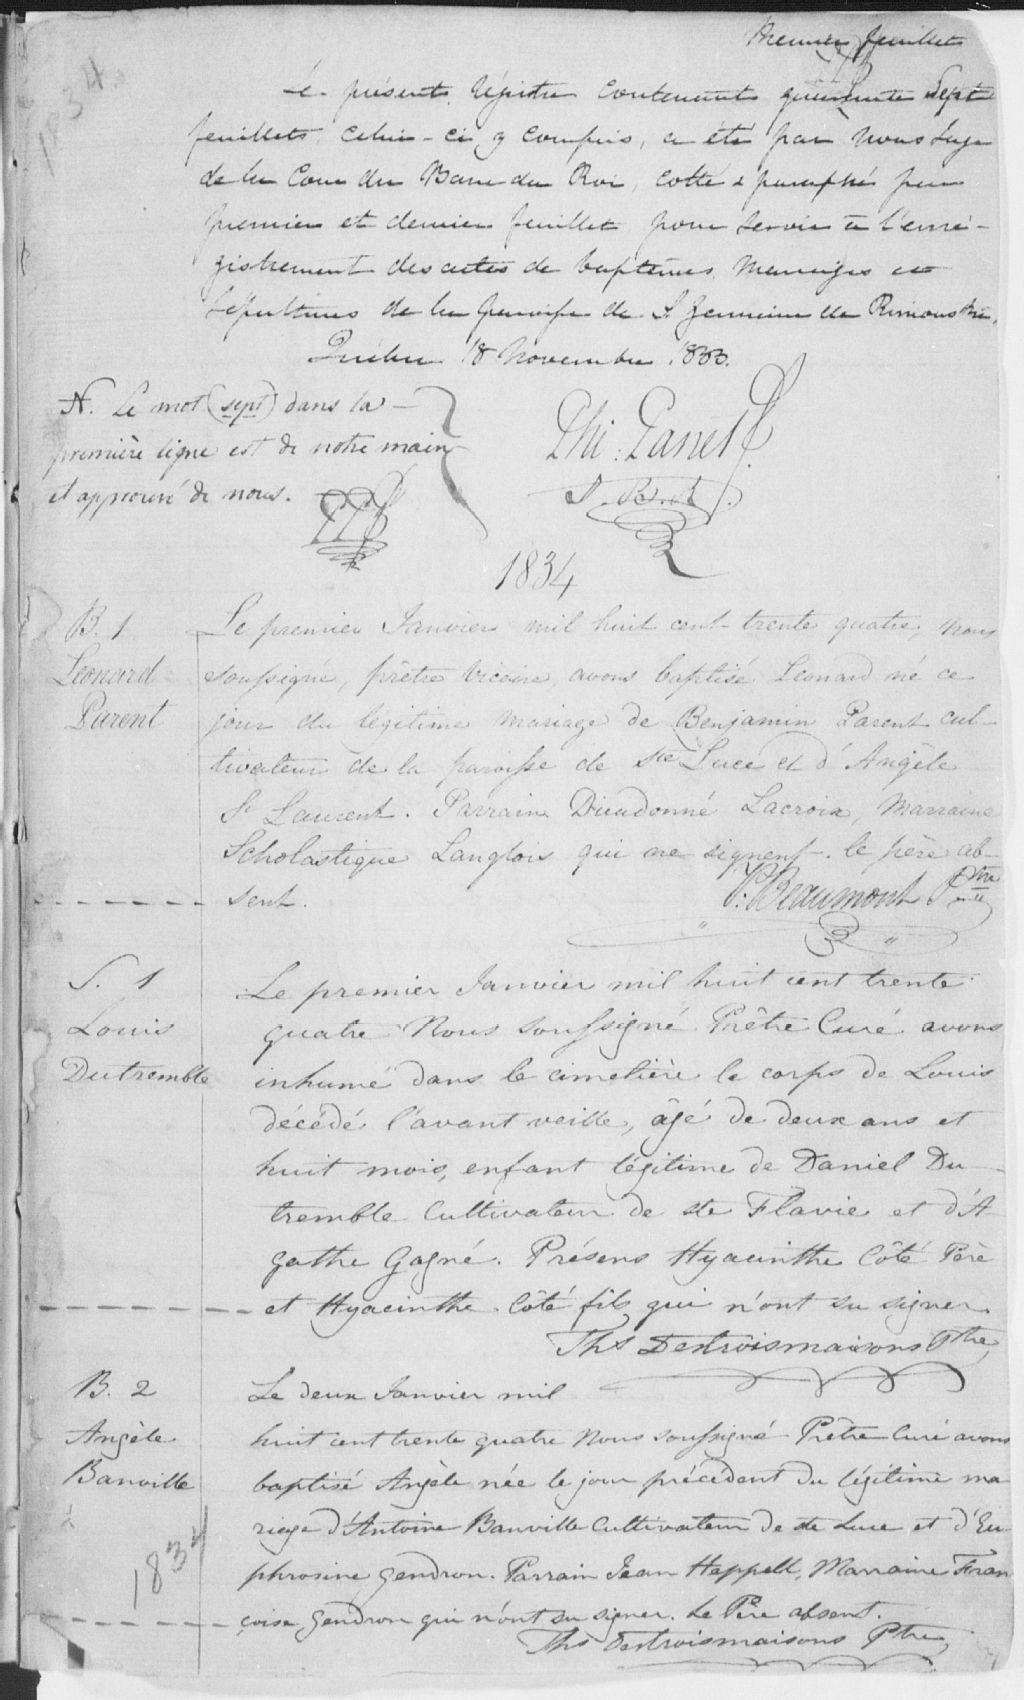 Premier feuillet
1834
Le présent Régistre contenant quarante Sept
feuillets, celui-ci y compris, a été par Nous Juge
de la Cour du Banc du Roi, cotté & paraphé par
premier et dernier feuillet pour servir à l'enré-
gistrement des actes de baptêmes, Mariages et
Sépultures de la paroisse de St Germain de Rimouski,
Québec 18 Novembre 1833.
N. Le mot (sept) dans la
première ligne est de notre main
et approuvé de nous.
Phi: Panet
J. B. R.
1834
B. 1
Leonard
Parent
Le premier Janvier mil huit cent trente quatre, nous
soussigné, prêtre vicaire, avons baptisé Leonard né ce
jour du légitime mariage de Benjamin Parent cul-
tivateur de la paroisse de Ste Luce et d'Angèle
St Laurent. Parrain Dieudonné Lacroix, Marraine
Scholastique Langlois qui ne signent. le père ab-
sent.
P: Beaumont Ptre
S. 1
Louis
Dutremble
Le premier Janvier mil huit cent trente
quatre Nous soussigné Prêtre Curé avons
inhumé dans le cimetière le corps de Louis
décédé l'avant veille, âgé de deux ans et
huit mois, enfant légitime de Daniel Du-
tremble Cultivateur de ste Flavie et d'A-
gathe Gagné. Présens Hyacinthe Côté Père
et Hyacinthe Côté fils qui n'ont su signer.
Ths Destroismaisons Ptre
B. 2
Angèle
Banville
1834
Le deux Janvier mil
huit cent trente quatre Nous soussigné Prêtre Curé avons
baptisé Angèle née le jour précédent du légitime ma
riage d'Antoine Banville Cultivateur de ste Luce et d'Eu-
phrosine Gendron. Parrain Jean Heppell, Marraine Fran
çoise Gendron qui n'ont su signer. Le Père absent.
Ths Destroismaisons Ptre